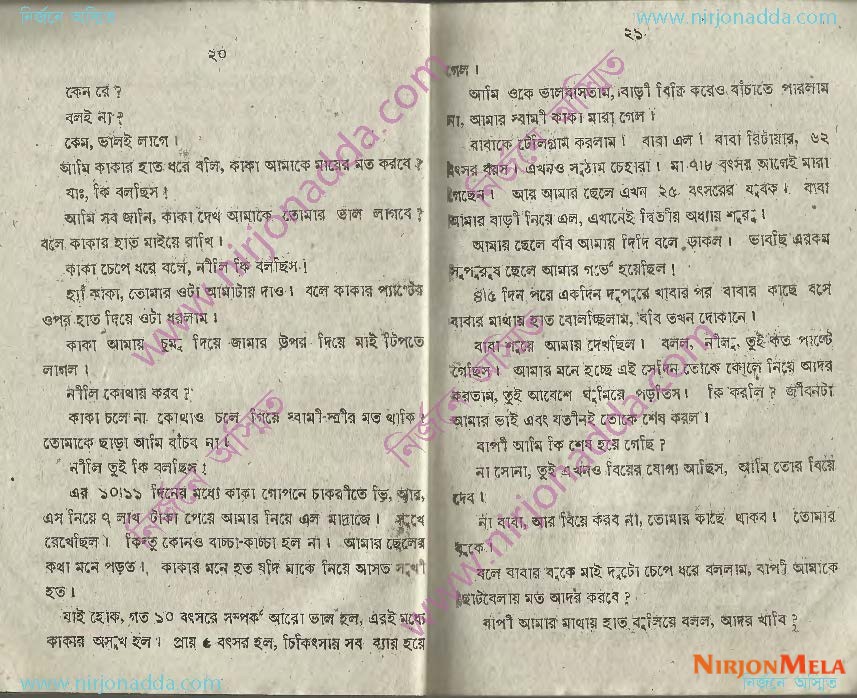 নির্জনে অস্মিত
www.nirjonadda.com
২০
কেন রে ?
বলই না ?
কেম, ভালই লাগে ।
আমি কাকার হাত ধরে বলি, কাকা আমাকে মায়ের মত করবে ?
যাঃ, কি বলছিস !
আমি সব জানি, কাকা দেখ আমাকে তোমার ভাল লাগবে ?
বলে কাকার হাত মাইয়ে রাখি ।
কাকা চেপে ধরে বলে, নীলি কি বলছিস !
হ্যাঁ কাকা, তোমার ওটা আমাটায় দাও । বলে কাকার প্যান্টের
ওপর হাত দিয়ে ওটা ধরলাম ।
কাকা আমায় চুমু দিয়ে জামার উপর দিয়ে মাই টিপতে
লাগল ।
নীলি কোথায় করব ?
কাকা চলে না কোথাও চলে গিয়ে স্বামী-স্ত্রীর মত থাকি ।
তোমাকে ছাড়া আমি বাঁচব না ।
নীলি তুই কি বলছিস !
এর ১০।১১ দিনের মধ্যে কাকা গোপনে চাকরীতে ভি, আর,
এস নিয়ে ৭ লাখ টাকা পেয়ে আমার নিয়ে এল মাদ্রাজে । সুখে
রেখেছিল । কিন্তু কোনও বাচ্চা-কাচ্চা হল না । আমার ছেলের
কথা মনে পড়ত । কাকার মনে হত যদি মাকে নিয়ে আসত সুখী
হত ।
যাই হোক, গত ১০ বৎসরে সম্পর্ক আরো ভাল হল, এরই মধ্যে
কাকার অসুখ হল । প্রায় ৫ বৎসর হল, চিকিৎসায় সব ব্যায় হয়ে
২১
গেল ।
আমি ওকে ভালবাসতাম, বাড়ী বিক্রি করেও বাঁচাতে পারলাম
না, আমার স্বামী কাকা মারা গেল ।
বাবাকে টেলিগ্রাম করলাম । বাবা এল । বাবা রিটায়ার, ৬২
বৎসর বয়স । এখনও সুঠাম চেহারা । মা ৭।৮ বৎসর আগেই মারা
গেছেন । আর আমার ছেলে এখন ২৫ বৎসরের যুবক । বাবা
আমার বাড়ী নিয়ে এল, এখানেই দ্বিতীয় অধ্যায় শুরু ।
আমার ছেলে ববি আমায় দিদি বলে ডাকল । ভাবছি এরকম
সুপুরুষ ছেলে আমার গর্ভে হয়েছিল ।
৪।৫ দিন পরে একদিন দুপুরে খাবার পর বাবার কাছে বসে
বাবার মাথায় হাত বোলাচ্ছিলাম, ববি তখন দোকানে ।
বাবা শুয়ে আমায় দেখছিল । বলল, নীলু, তুই কত পাল্টে
গেছিস । আমার মনে হচ্ছে এই সেদিন তোকে কোলে নিয়ে আদর
করতাম, তুই আবেশে ঘুমিয়ে পড়তিস । কি করলি ? জীবনটা
আমার ভাই এবং যতীনই তোকে শেষ করল ।
বাপী আমি কি শেষ হয়ে গেছি ?
না সোনা, তুই এখনও বিয়ের যোগ্য আছিস, আমি তোর বিয়ে
দেব ।
না বাবা, আর বিয়ে করব না, তোমার কাছে থাকব । তোমার
বুকে ।
বলে বাবার বুকে মাই দুটো চেপে ধরে বললাম, বাপী আমাকে
ছোটবেলায় মত আদর করবে ?
বাপী আমার মাথায় হাত বুলিয়ে বলল, আদর খাবি ?
www.nirjonadda.com
নির্জনে অস্মিত
www.nirjonadda.com
নির্জনে অস্মিত
নির্জনে অস্মিত
www.nirjonadda.com
নির্জনে অস্মিত
www.nirjonadda.com
NIRJONMELA
নির্জনে অস্মিত